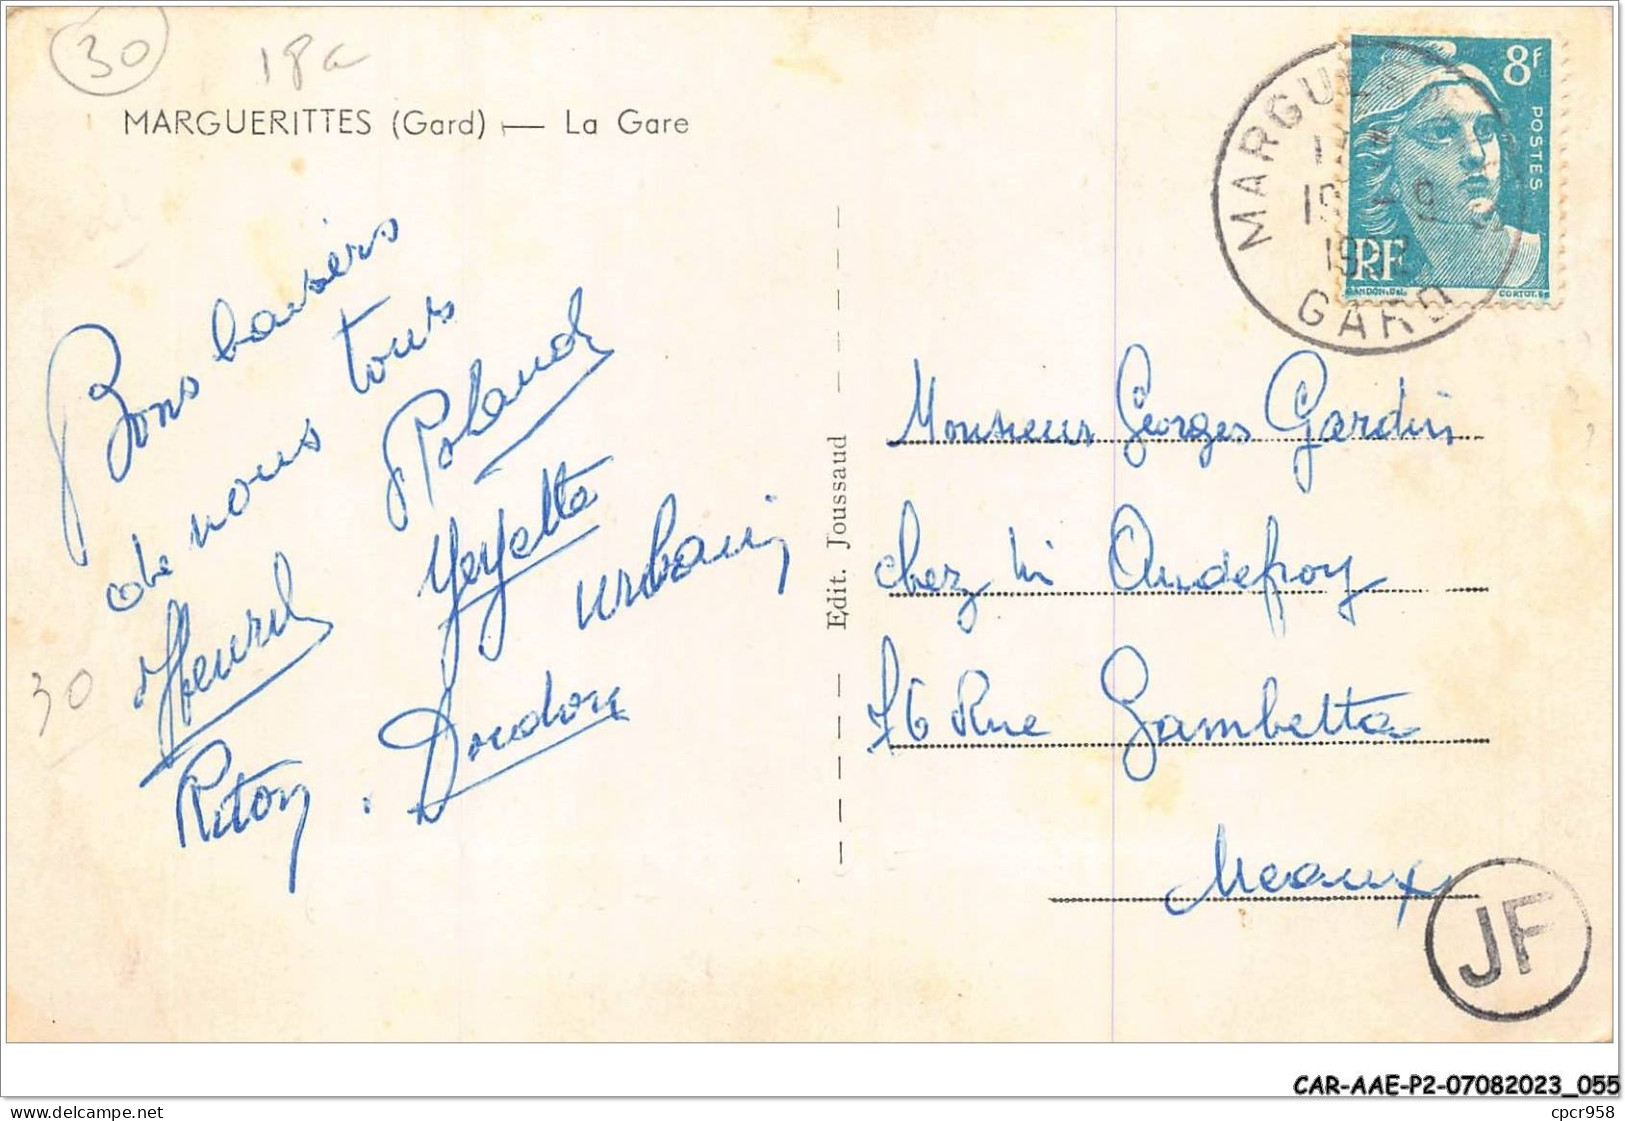 30
18a
MARGUERITTES (Gard) — La Gare
Bons baisers
de nous tous
Henri Roland
Yeyette
Urbain
Riton. Doudou
30
Edit. Joussaud
8F
POSTES
RF
GANDON. Del.
CORTOT. Sc
GARD
Monsieur Georges Gardin
chez Mr Audefroy
76 Rue Gambetta
Meaux
JF
CAR-AAE-P2-07082023_055
www.delcampe.net
cpcr958